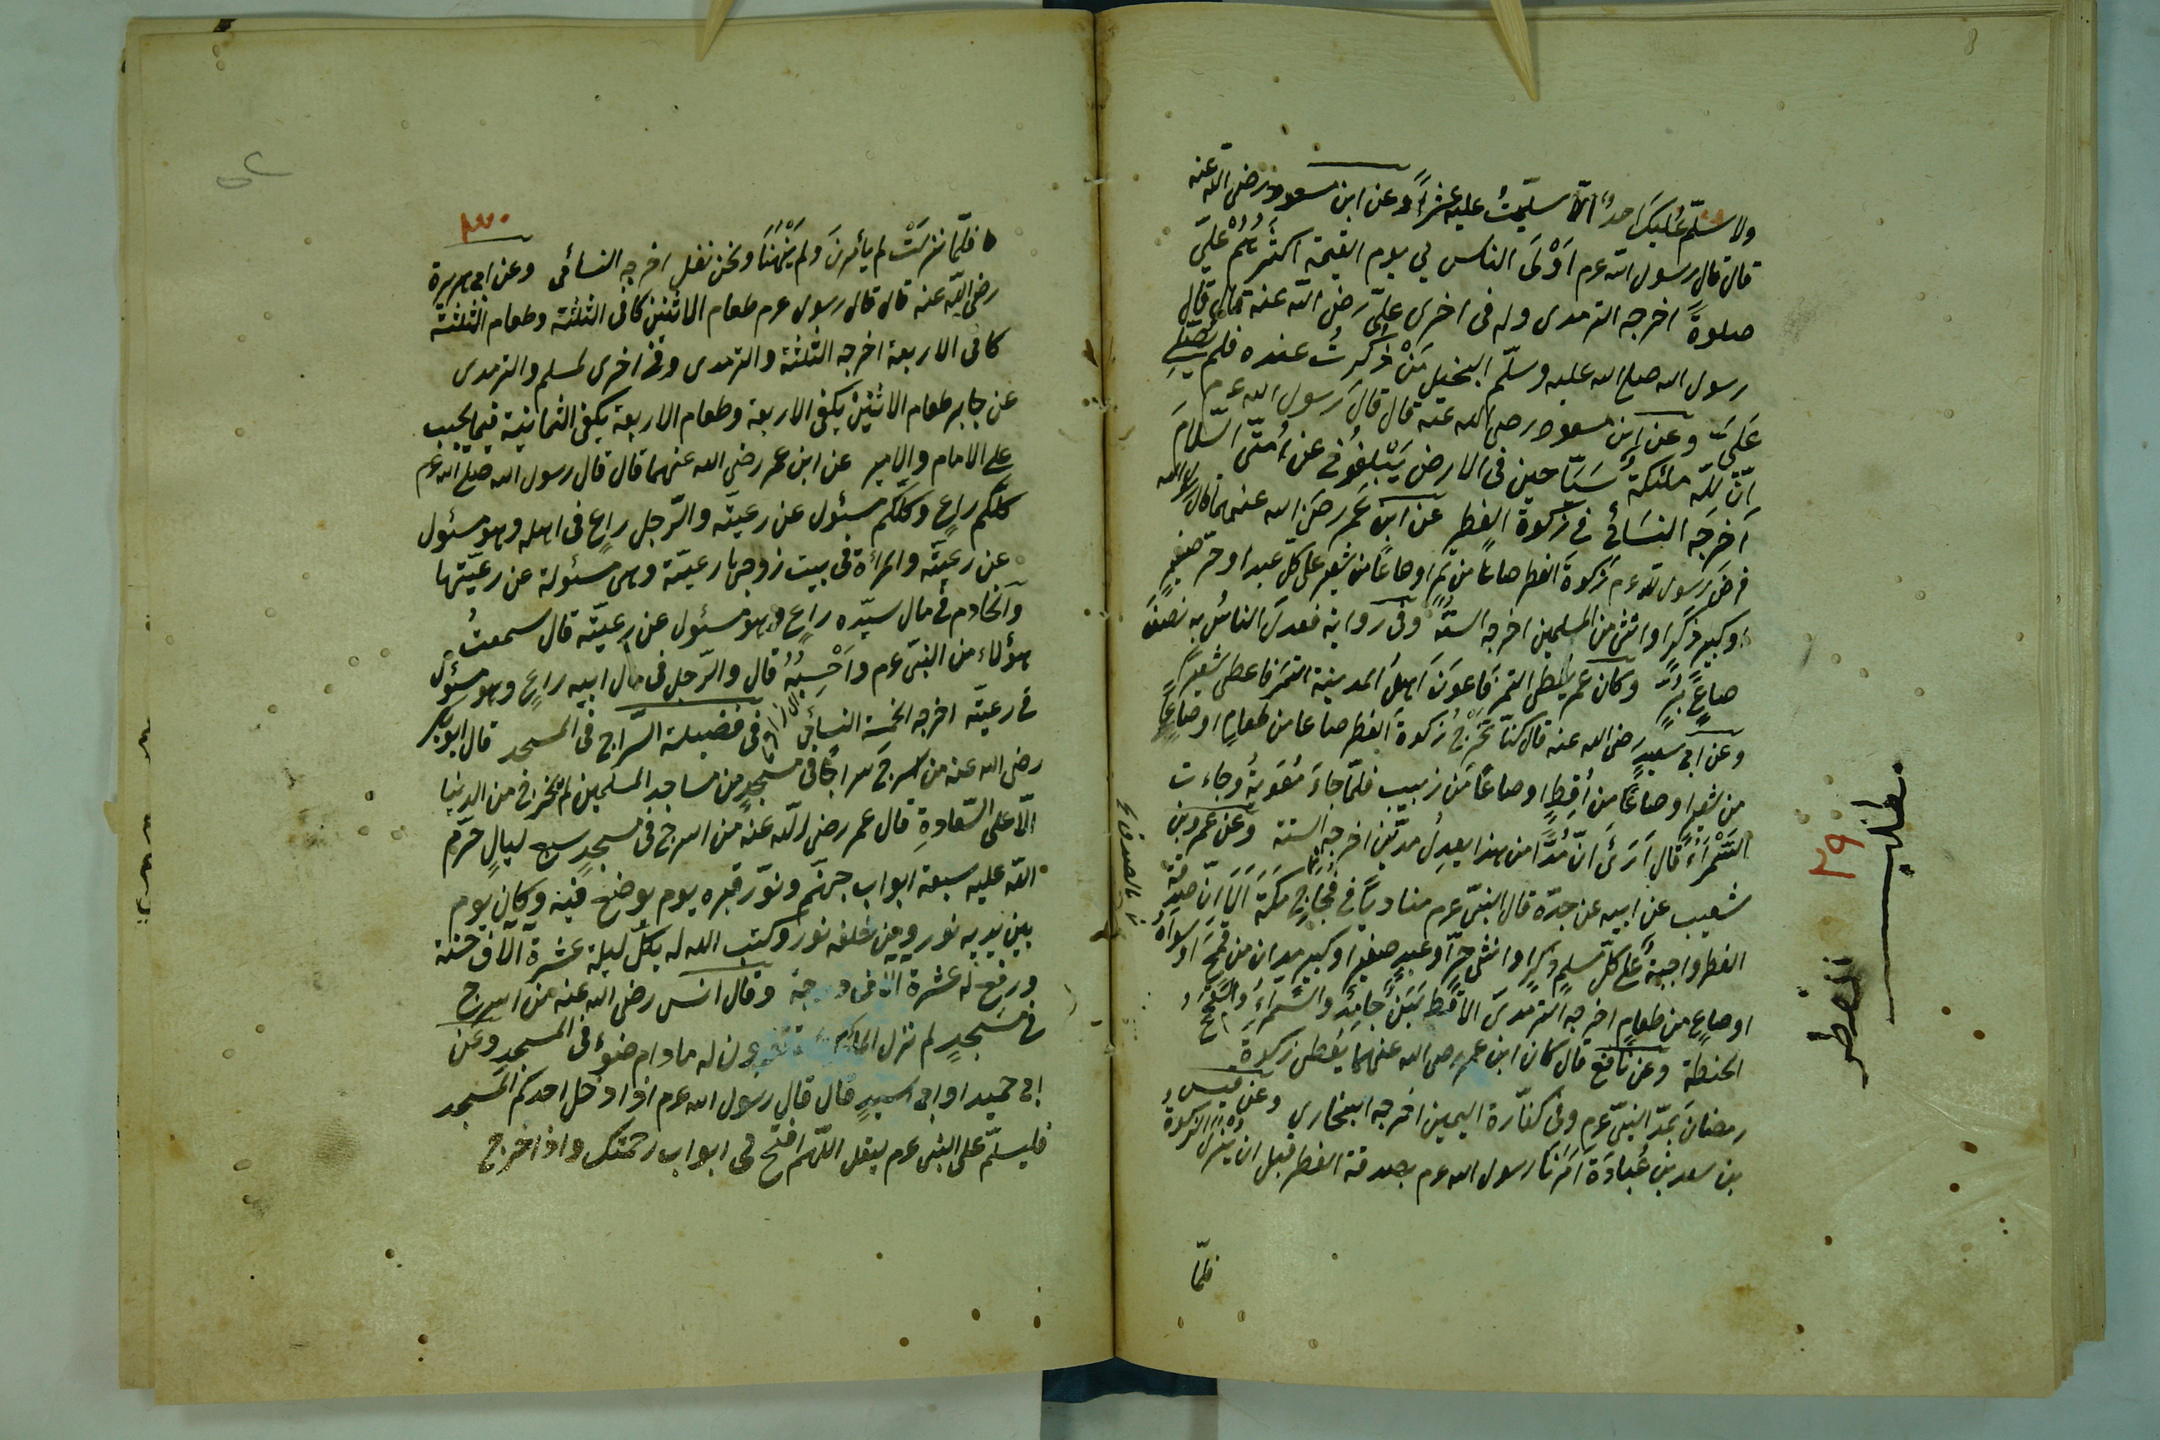 ولا سلّم عليك احدٌ الّا سلّمتُ عليه عشرًا وعن ابن مسعود رضى الله عنه
قال قال رسول الله عم اَوْلَى الناس بي يوم القيمة اكثرُهُمْ عليَّ
صلوةً اخرجه الترمدى وله فى اخرى علىّ رضى الله عنه قال قال
رسول الله صلع الله عليه وسلّم البخيل مَنْ ذُكرتُ عنده فلم يُصَلِّ
عَلَىَّ وعن ابن مسعود رضى الله عنه قال قال رسول الله عم
انّ للّه ملئكةً سَيّاحين فى الارض يُبَلِّغُونى عن اُمّتى السّلامَ
اَخرَجَه النسَائى فى زكوة الفطر عن ابن عمر رضى الله عنهما قال
فرضَ رسول الله عم زكوةَ الفطر صاعًا من تمرٍ اوصاعًا من شعير على كلّ عبد او حرّ صغيرٍ
اوكبيرٍ ذكرٍ او انثى من المسلمين اخرجه الستّة وفى رواية فعدل الناسُ به نصفَ
صاعٍ بُرٍّ وكان عمر يعطى التمر فَاعوَزَ اَهلَ المدينة التمرَ فاعطى شعيرًا
وعن ابى سعيد رضى الله عنه قال كنّا نُخْرِجُ زكوةَ الفطر صاعا من طعامٍ اوصاعًا
من شعير اوصاعًا من اَقِطٍ اوصاعًا من زبيب فلمّا جاءَ مُعَوِيةُ وجاءت
السَّمْرَاءُ قال اَرَى انّ مُدًّا من هذا يعدِلُ مدّين اخرجه الستة وعن عمروبن
شعيب عن ابيه عن جدّه قال النبىّ عم مناديًا فى فِجَاجِ مكّةَ اَلَا انّ صدقة
الفطر واجبةٌ على كلّ مسلمٍ ذكرٍ او انثى حرٍّ او عبدٍ صغير اوكبير مدان من قمح او سواه
اوصاعٍ من طعامٍ اخرجه الترمدى الاَقِط لَبَنٌ جامِدٌ والسَّمْرَاءُ والقَمْحُ
الحنطة وعن نافع قال كان ابن عمر رضى الله عنهما يُعطى زكوةَ
رمضانَ بمُدّ النبىّ عم وفى كفّارة اليمين اخرجه البخارى وعن قيس
بن سعد بن عُبادَةَ اَمَرَنا رسول الله عم بصدقة الفطر قبل ان ينزل الزكوة
فلمّا
مطلب
٢٩
الفطر
فلمّا نزلَتْ لم يأمرنَ ولم يَنْهَنَا ونحن نفعل اخرجه النسائى وعن ابى هريرة
٣٠
رضى الله عنه قال قال رسول عم طعام الاثنين كافى الثلثة وطعام الثلثة
كافى الاربعة اخرجه الثلثة والترمدى وفى اخرى لمسلم والترمدى
عن جابر طعام الاثنين يكفى الاربعة وطعام الاربعة يكفى الثمانية فيما يجب
على الامام والامير عن ابن عمر رضى الله عنهما قال قال رسول الله صلع الله عم
كلّكم راعٍ وكلّكم مسئول عن رعيّته والرّجل راعٍ فى اهله وهو مسئول
عن رعيّته والمرأة فى بيت زوجها رعيّة وهى مسئولة عن رعيّتها
والخادم فى مال سيّده راعٍ وهو مسئول عن رعيّته قال سمعتُ
هؤلاء من النبىّ عم واَحْسِبُهُ قال والرّجل فى مال ابيه راعٍ وهو مسئول
فى رعيّته اخرجه الخمسة النسائى فى فضيلة السّراج فى المسجد قال ابوبكر
رضى الله عنه من اسرج سراجًا فى مسجدٍ من مساجد المسلمين لم يخرج من الدنيا
الّا على السّعادةِ قال عمر رضى الله عنه من اسرج فى مسجدٍ سبع ليالٍ حرّم
الله عليه سبعة ابواب جهنّم ونوّر قبره يوم يوضع فيه وكان يوم
بين يديه نور ومن خلفه نور وكتب الله له بكلّ ليلة عشرة آلاف حسنة
ورفع له عشرة الاف درجة وقال انس رضى الله عنه من اسرج
فى مسجدٍ لم تزل الملائكة يستغفرون له مادام ضوءُه فى المسجد وعن
ابى حميد او ابى اسيدٍ قال قال رسول الله عم اذا دخل احدكم المسجد
فليسلّم على النبى عم ليقل اللّهم افتح لى ابواب رحمتك واذا خرج